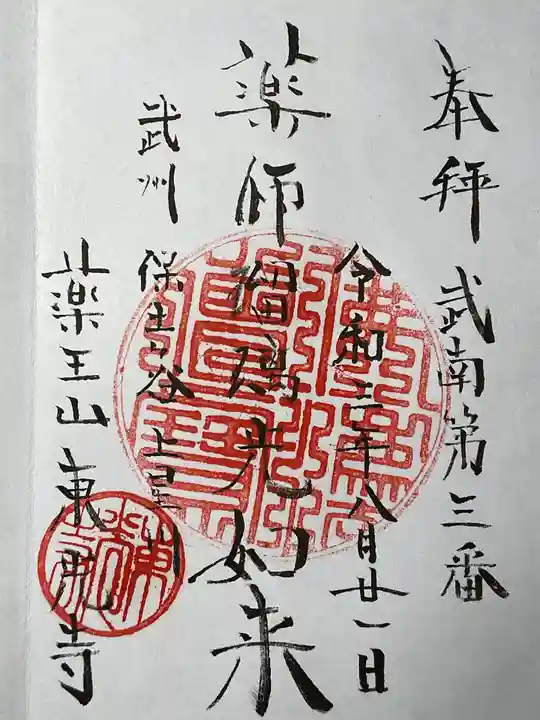 奉拝 武南第三番
令和三年八月廿一日
薬師瑠璃光如来
武州 保土ヶ谷上星川
薬王山東光寺